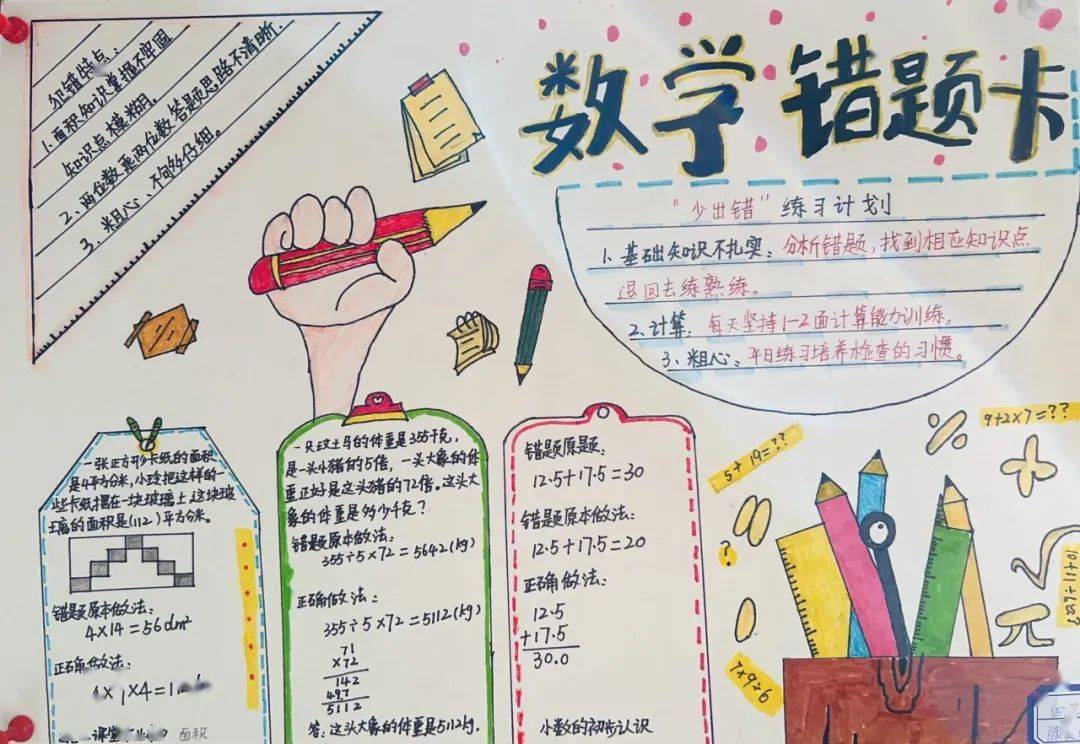 数学错题卡
犯错特点:
1.面积知识掌握不牢固
知识点模糊。
2、两位数乘两位数答题思路不清晰.
3.粗心、不够仔细。
"少出错"练习计划
1、基础知识不扎实:分析错题,找到相应知识点
退回去练熟练。
2、计算:每天坚持1-2面计算能力训练。
3、粗心:平日练习培养检查的习惯。
一张正方形卡纸的面积
是4平方分米,小玲把这样的一
些卡纸摆在一块玻璃上,这块玻
璃的面积是(112)平方分米。
错题原本做法:
4×14=56dm²
正确做法:
×4=1
课堂
面积
一只斑马的体重是355千克,
是一头小猪的5倍,一头大象的体
重正好是这头猪的72倍。这头大
象的体重是多少千克?
错题原本做法:
355÷5×72=5642(kg)
正确做法:
355÷5×72=5112(kg)
71
×72
142
497
5112
答:这头大象的体重是5112kg.
错题原题:
12.5+17.5=30
错题原本做法:
12.5+17.5=20
正确做法:
12.5
+17.5
30.0
小数的初步认识
5+19=??
9+2×7=??
?
7×9÷6